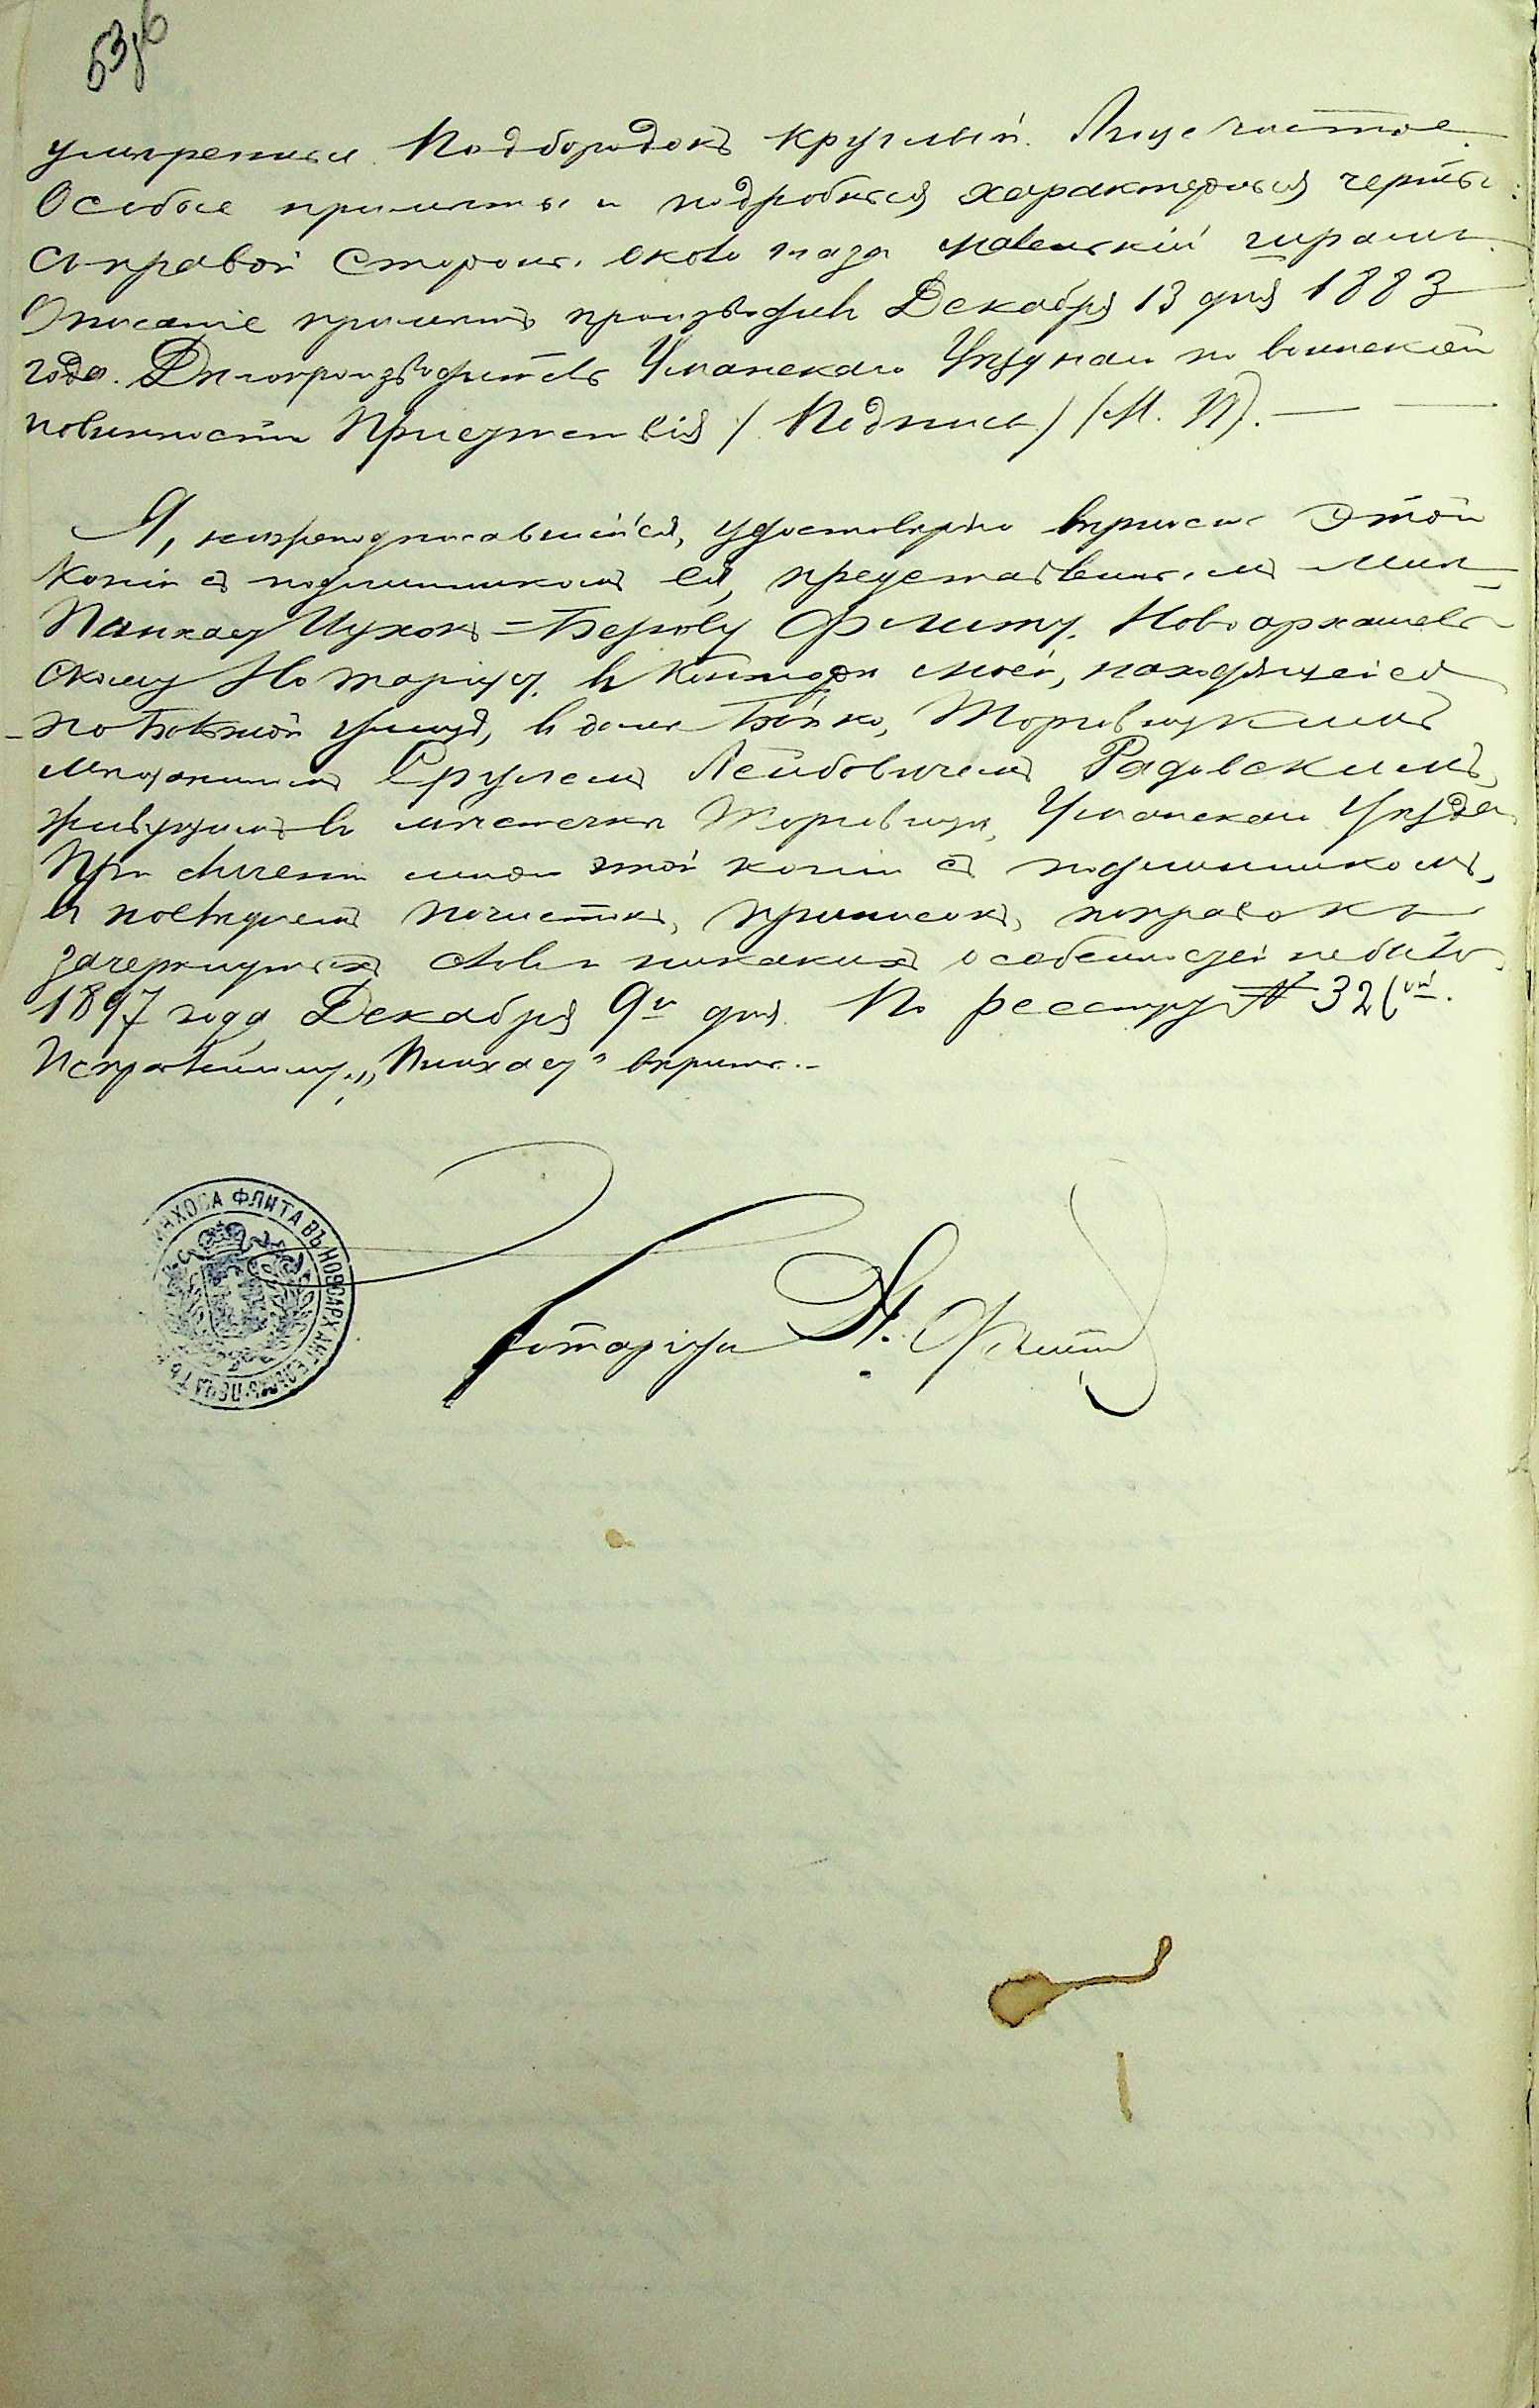 53об
умѣренный. Подбородокъ круглый. Лице чистое.
Особые примѣты и подробныя характерныя черты:
съ правой стороны около глаза маленькій шрамъ.
Описаніе примѣтъ производилъ Декабря 13 дня 1883
года. Дѣлопроизводитель Уманскаго Уѣзднаго по воинской
повинности Присутствія (Подпись) (М. П).
Я, нижеподписавшійся, удостовѣряю вѣрность этой
копіи съ подлинникомъ ея, представленнымъ мнѣ
Пинхасу Ицхокъ-Беркову Флиту, Новоархангель-
скому Нотаріусу, въ Конторѣ моей, находящейся
по улицѣ, въ домѣ Бойко, Торговицкимъ
мѣщаниномъ Срулемъ Лейбовичемъ Радовскимъ,
живущимъ въ мѣстечкѣ Торговицѣ, Уманскаго Уѣзда.
При сличеніи мною этой копіи съ подлинникомъ,
въ послѣднемъ почистокъ, приписокъ, поправокъ
зачеркнутыхъ словъ и никакихъ особенностей не было.
1897 года Декабря 9го дня. По реестру № 326ой.
Исправленному: „Пинхасу“ вѣрить.
Нотаріусъ П. Флитъ
ПИНХОСА ФЛИТА ВЪ НОВОАРХАНГЕЛЬСКѢ ПЕЧАТЬ